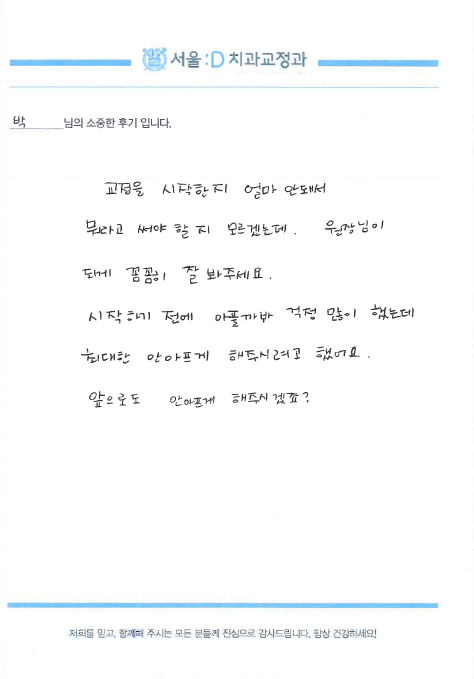 서울:D 치과교정과
박 님의 소중한 후기 입니다.
교정을 시작한지 얼마 안돼서
뭐라고 써야 할 지 모르겠는데. 원장님이
되게 꼼꼼히 잘 봐주세요.
시작하기 전에 아플까봐 걱정 많이 했는데
최대한 안아프게 해주시려고 했어요.
앞으로도 안아프게 해주시겠죠?
저희를 믿고, 함께해 주시는 모든 분들께 진심으로 감사드립니다. 항상 건강하세요!